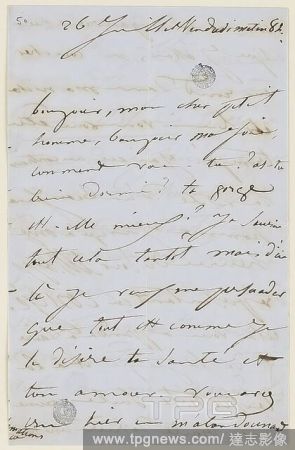 26 Juillet Vendredi matin 8h.
bonjour, mon cher petit
homme, bonjour ma joie
comment vas-tu? As-tu
bien dormi? ta gorge
est-elle mieux? Je saurai
tout cela tantôt mais d'ici
là je veux me persuader
que tout est comme je
le désire ta santé et
ton amour.
hier
TPG
www.tpgnews.com/達志影像